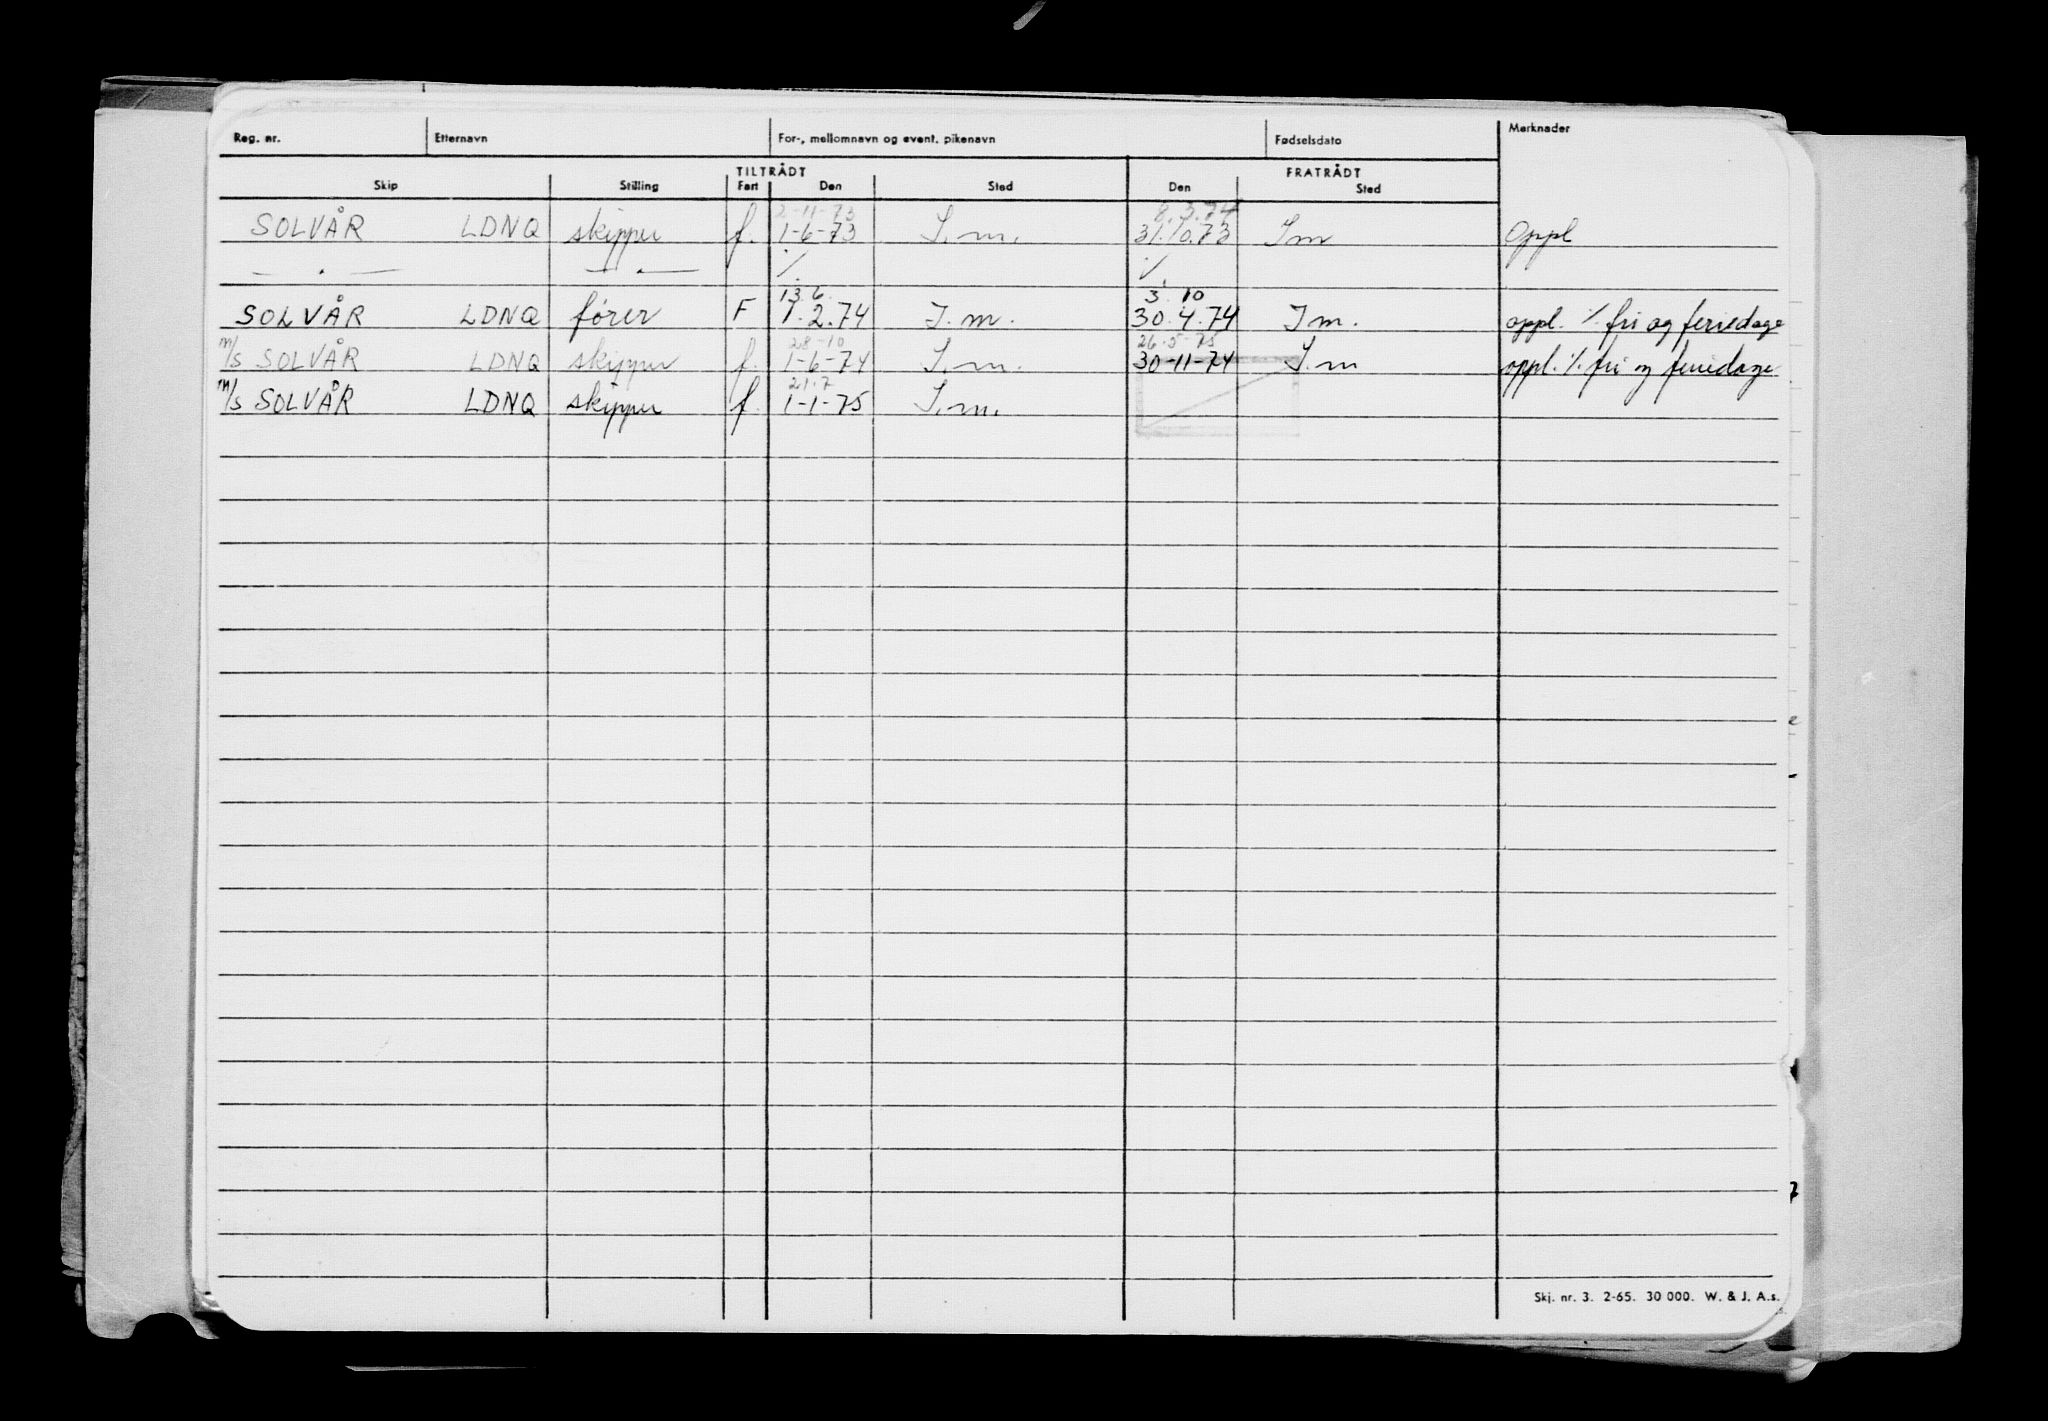 Reg. nr. Etternavn For-, mellomnavn og event. pikenavn Fødselsdato Merknader
TILTRÅDT FRATRÅDT
Skip Stilling Fart Den Sted Den Sted
2-11-73 8.3.74
SOLVÅR LDNQ skipper f. 1-6-73 I.m. 31.10.73 Im Oppl
— . — — . — ./. ./.
13.6. 3. 10
SOLVÅR LDNQ fører F 1.2.74 I.m. 30.4.74 Im. oppl. ./. fri og feriedage
28-10 26.5-75
m/s SOLVÅR LDNQ skipper f. 1-6-74 I.m. 30-11-74 I.m oppl. ./. fri og feriedage
21.7
m/s SOLVÅR LDNQ skipper f. 1-1-75 I.m.
Skj. nr. 3. 2-65. 30 000. W. & J. A.s.